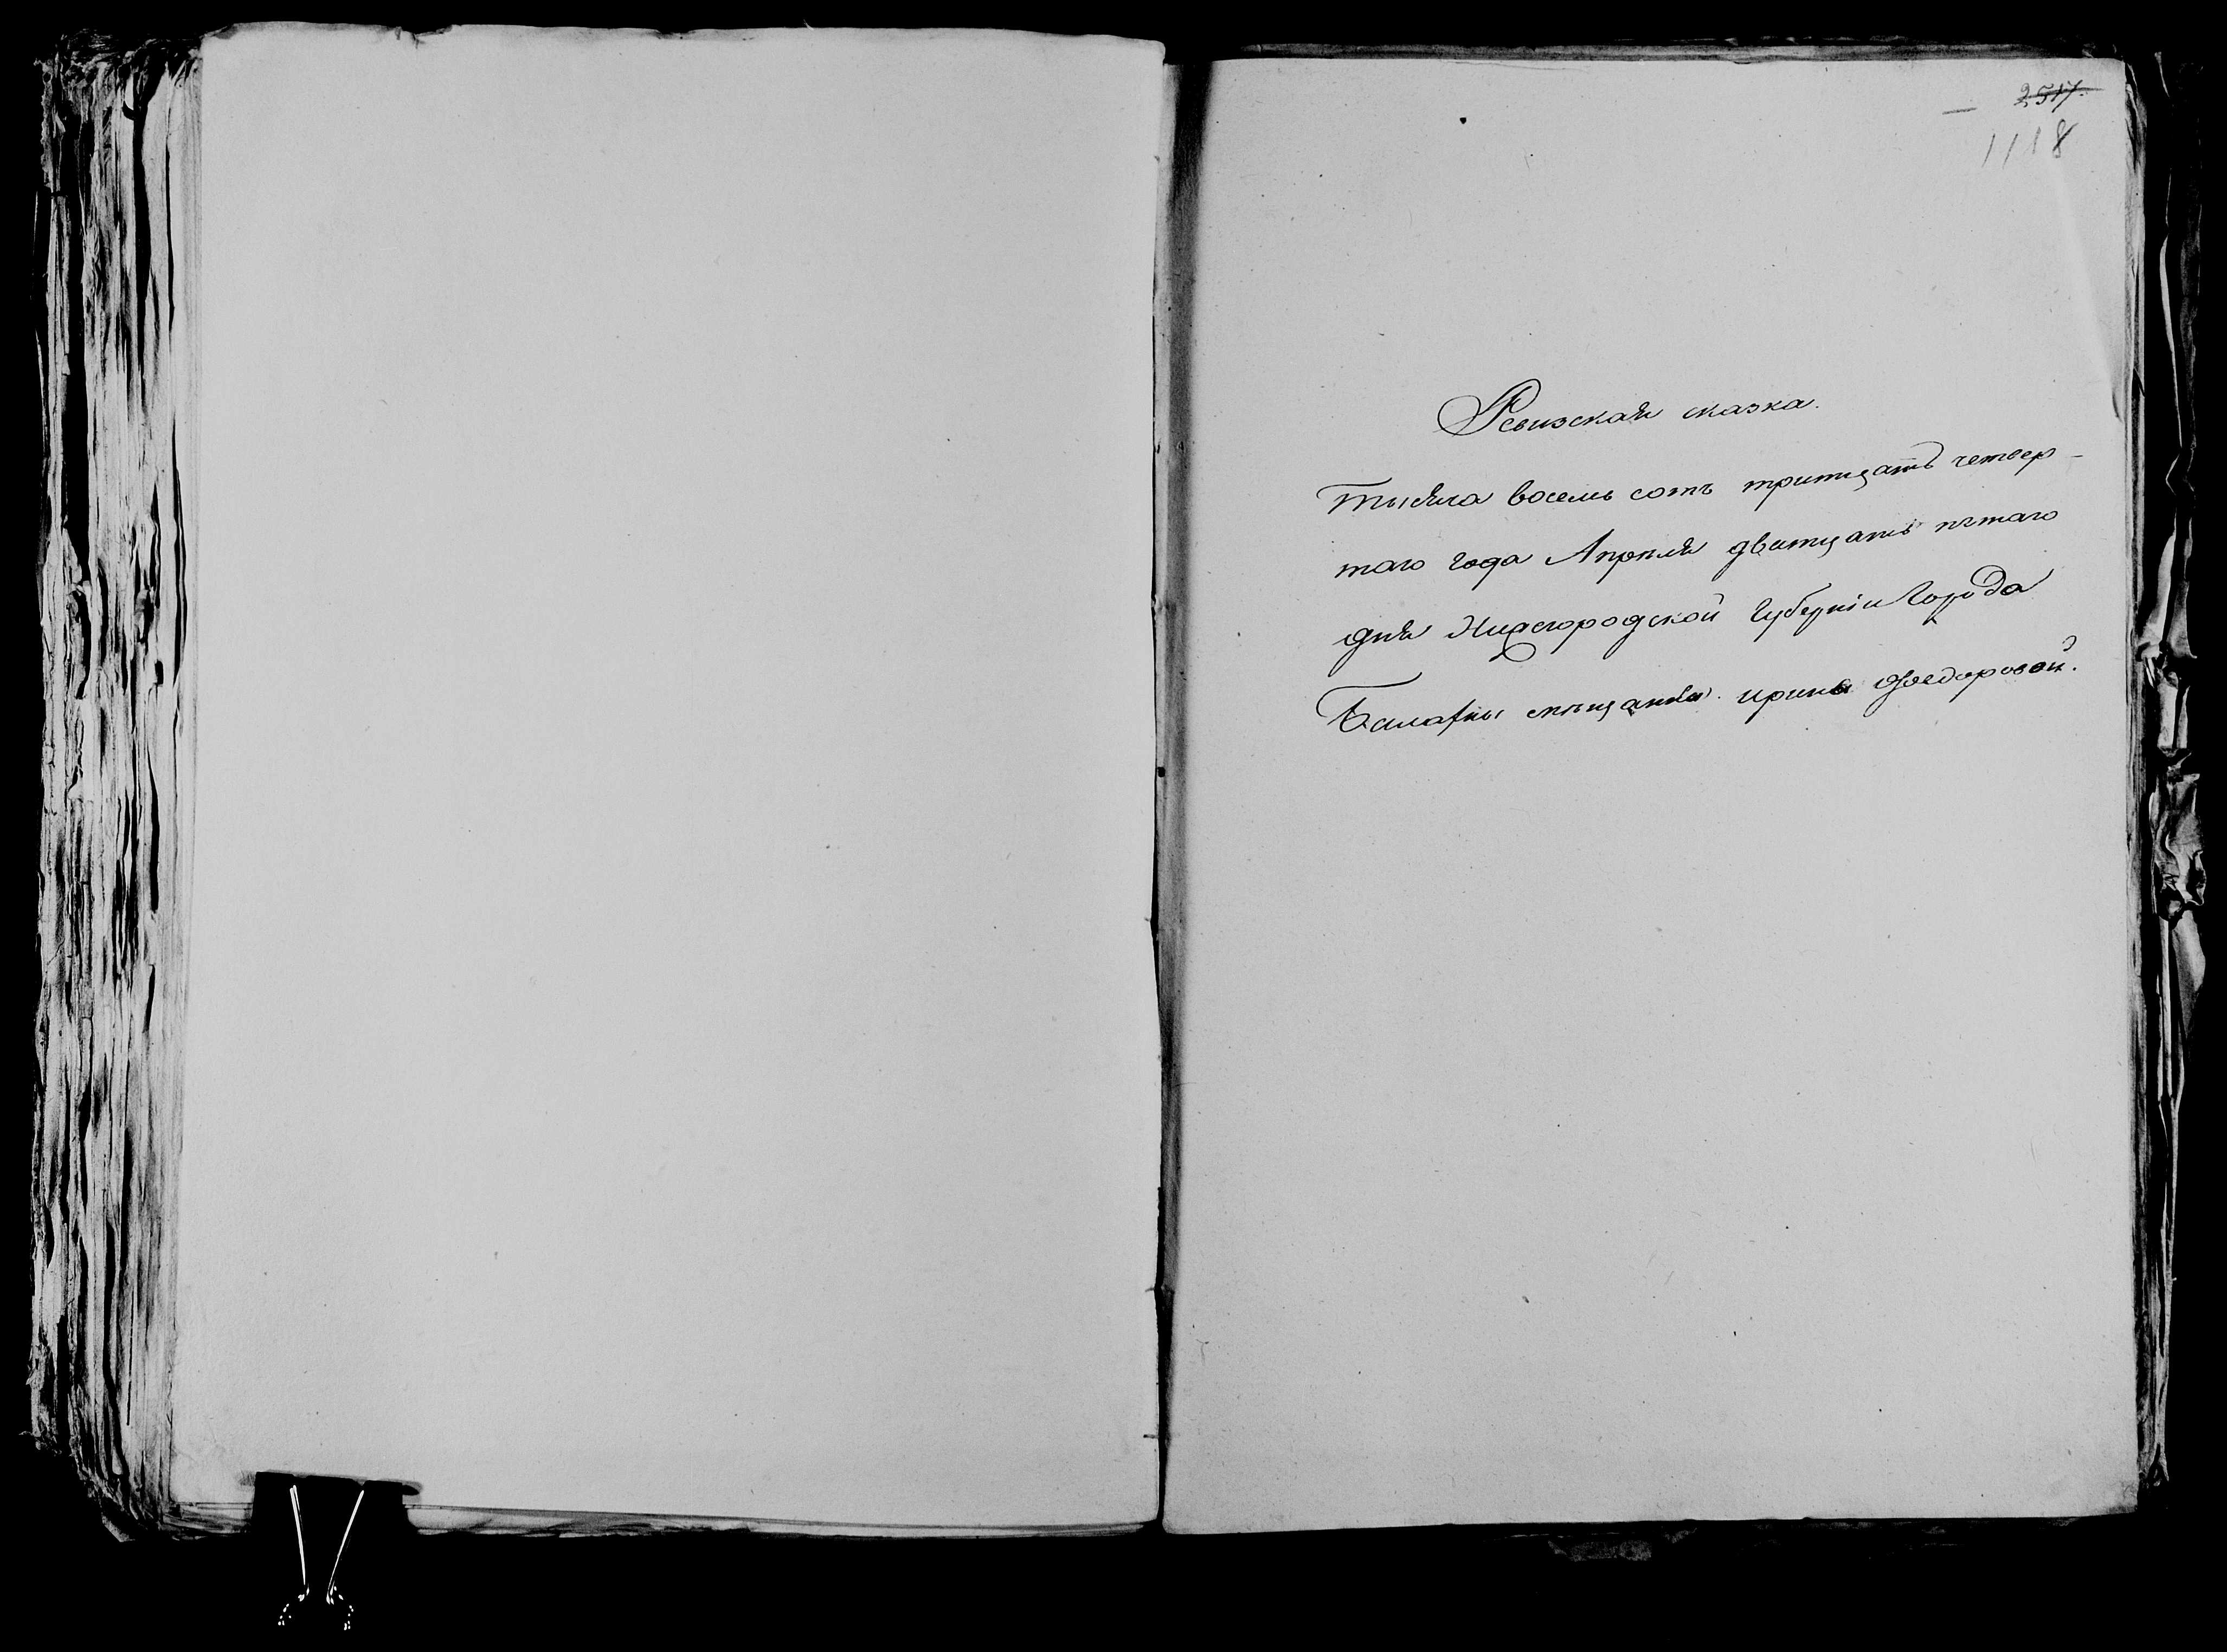 2517.
1118
Ревизская сказка.
Тысяча восемь сотъ тритцать четвер-
таго года Апреля дватцать пятаго
дня Нижегородской Губерніи Города
Балахны мещанки ирины Федоровой.